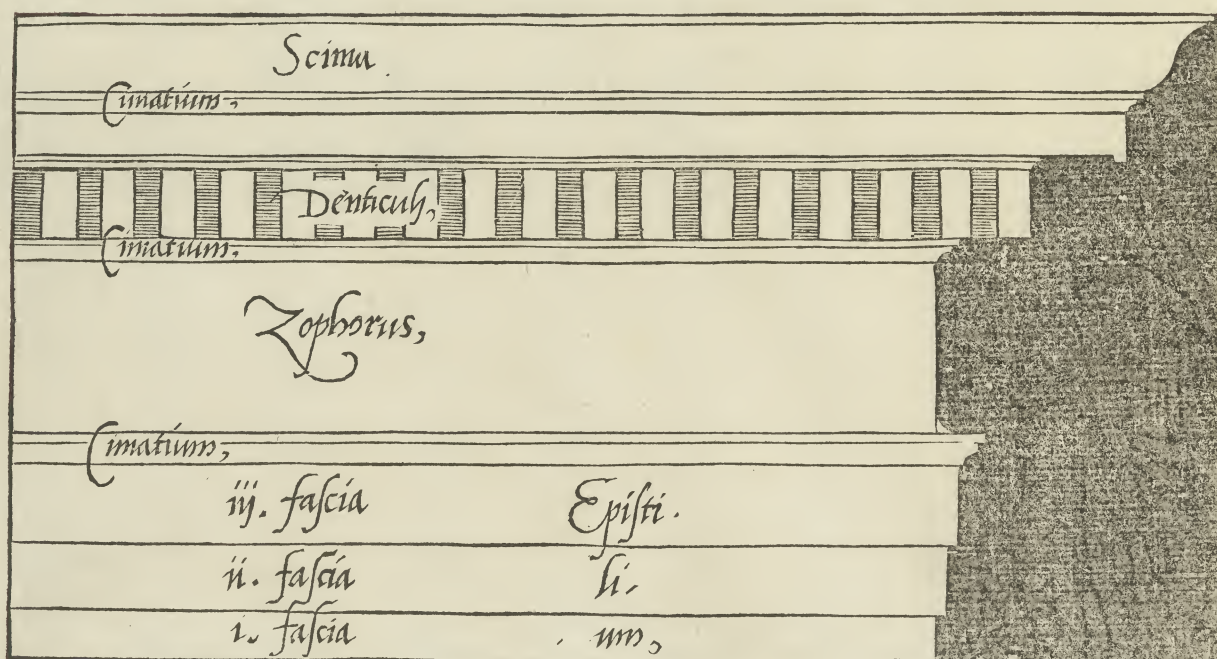 Scima.
Cimatium,
Denticuli,
Cimatium,
Zophorus,
Cimatium,
iij. faſcia Epiſti.
ii. faſcia li,
i. faſcia um,